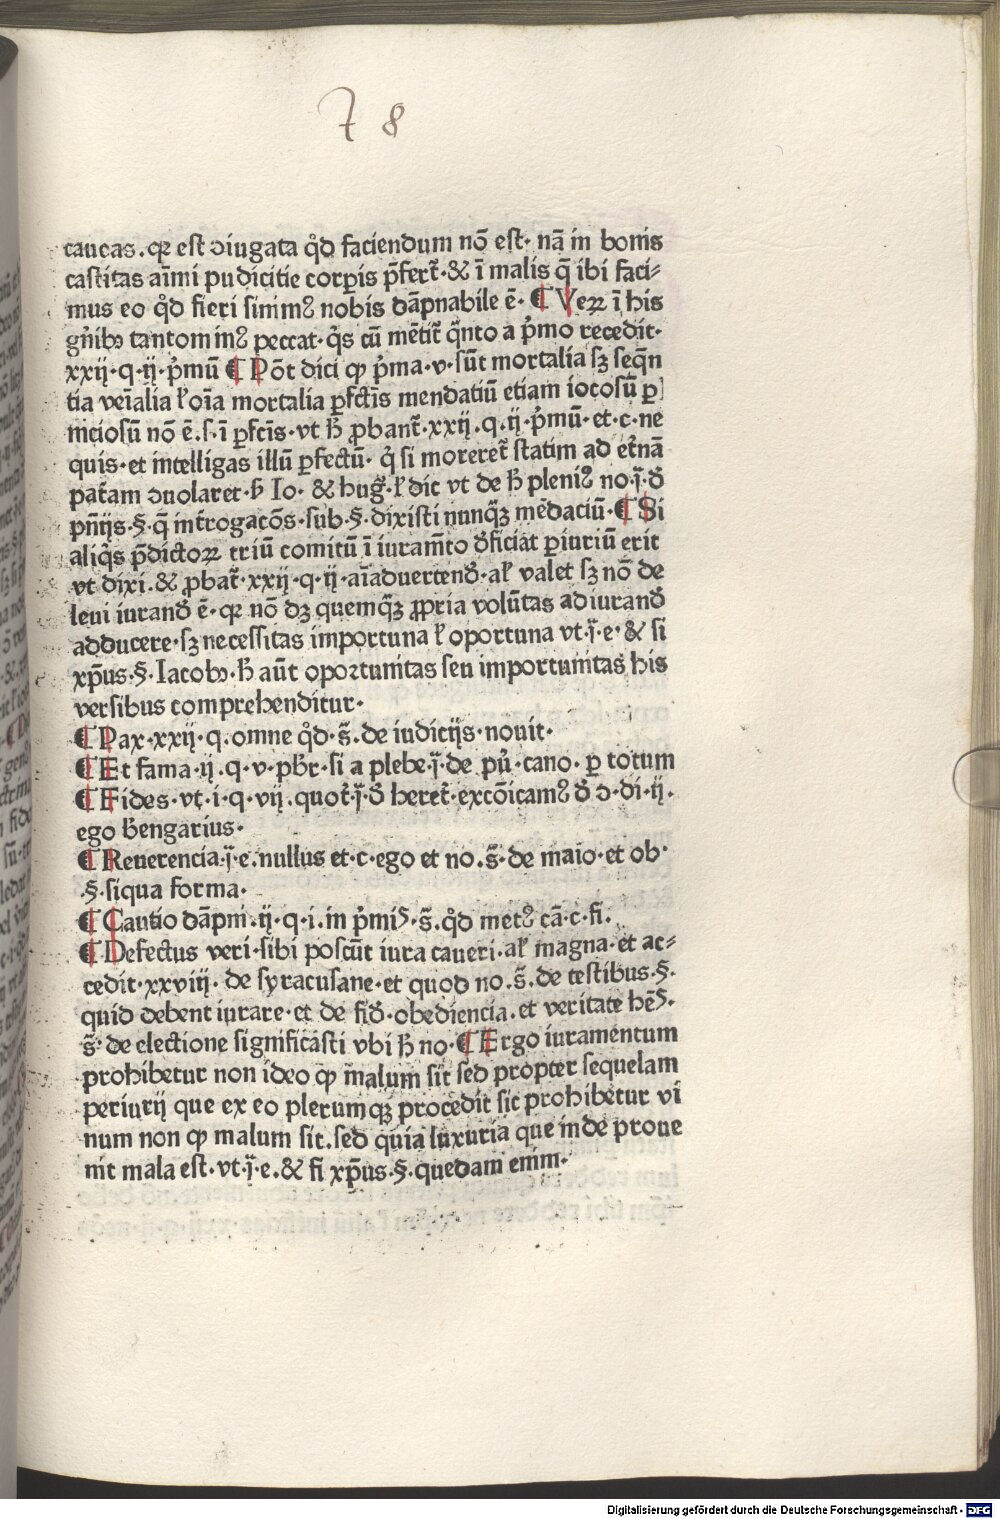 78
caucas. qꝛ est ɔiugata qd̊ faciendum nō est· nā in bonis
castitas aīmi pudicitie corꝑis p̄fert᷑·& ī malis q̄ ibi faci⸗
mus eo qd̊ fieri sinimꝰ nobis dāpnabile ē· ¶ Veꝝ ī his
gn̄ibꝫ tantominꝰ peccat· qͥs cū mētit᷑ qͣnto a pͥmo recedit·
xxij·q·ij·pͥmū ¶ Pōt dici ꝙ pͥma·v·sūt mortalia sꝫ seqn̄
tia veīalia ł oīa mortalia ꝑfctīs mendatiū etiam iocosū ꝑ
niciosū nō ē.s·ī ꝑfcīs·vt ħ ꝓbant᷑·xxij·q·ij·pͥmū·et·c·ne
quis·et intelligas illū ꝑfectū· qͥ si moreret᷑ statim ad et̓nā
pat̓am ɔuolaret·ẜ Io· & hug̓·ł dic vt de ħ pleniꝰ no·j̄·đ
pn̄ijs·§·q̄ int̓rogacōs·sub·§·dixisti nunqͣꝫ mēdaciū·¶ Si
aliqͥs p̄dictoꝝ triū comitū ī iuramēto đficiat ꝑiuriū erit
vt dixi·& ꝓbat᷑·xxij·q·ij·aīaduertenđ·ał valet sꝫ nō de
leui iuranđ ē·qꝛ nō dꝫ quemqͣꝫ ꝓpria volūtas ad iuranđ
adducere·sꝫ necessitas importuna ł oportuna vt·j̄·e·& si
xp̄us·§·Iacobꝫ·ħ aūt oportunitas seu importunitas his
versibus comprehenditur·
¶ Pax·xxij·q·omne qd̊·s̄·de iudicijs·nouit·
¶ Et fama·ij·q·v·pb̄r·si a plebe·j̄·de pur̓·cano·ꝑ totum
¶ Fides·vt·i·q·vij·quot᷑·j̄·đ heret̓·excōicamꝰ đ ɔ·di·ij·
ego bengarius·
¶ Reuerencia·j̄·e·nullus et·c·ego et no·s̄·de maio·et ob·
·§·siqua forma·
¶ Cautio dāpni·ij·q·i·in pͥmis·s̄·qd̊ metꝰ cā·c·fi·
¶ Defectus veri·sibi poscūt iura caueri·ał magna·et ac⸗
cedit·xxviij·de syracusane·et quod no·s̄·de testibus·§·
quid debent iurare·et de fiđ·obediencia·et veritate hēs·
s̄·de electione significasti vbi ħ no·¶ Ergo iuramentum
prohibetur non ideo ꝙ malum sit sed propter sequelam
periurij que ex eo plerumqꝫ procedit sic prohibetur vi
num non ꝙ malum sit·sed quia luxuria que inde proue
nit mala est·vt·j̄·e·& fi xp̄us·§·quedam enim·
Digitalisierung gefördert durch die Deutsche Forschungsgemeinschaft - DFG